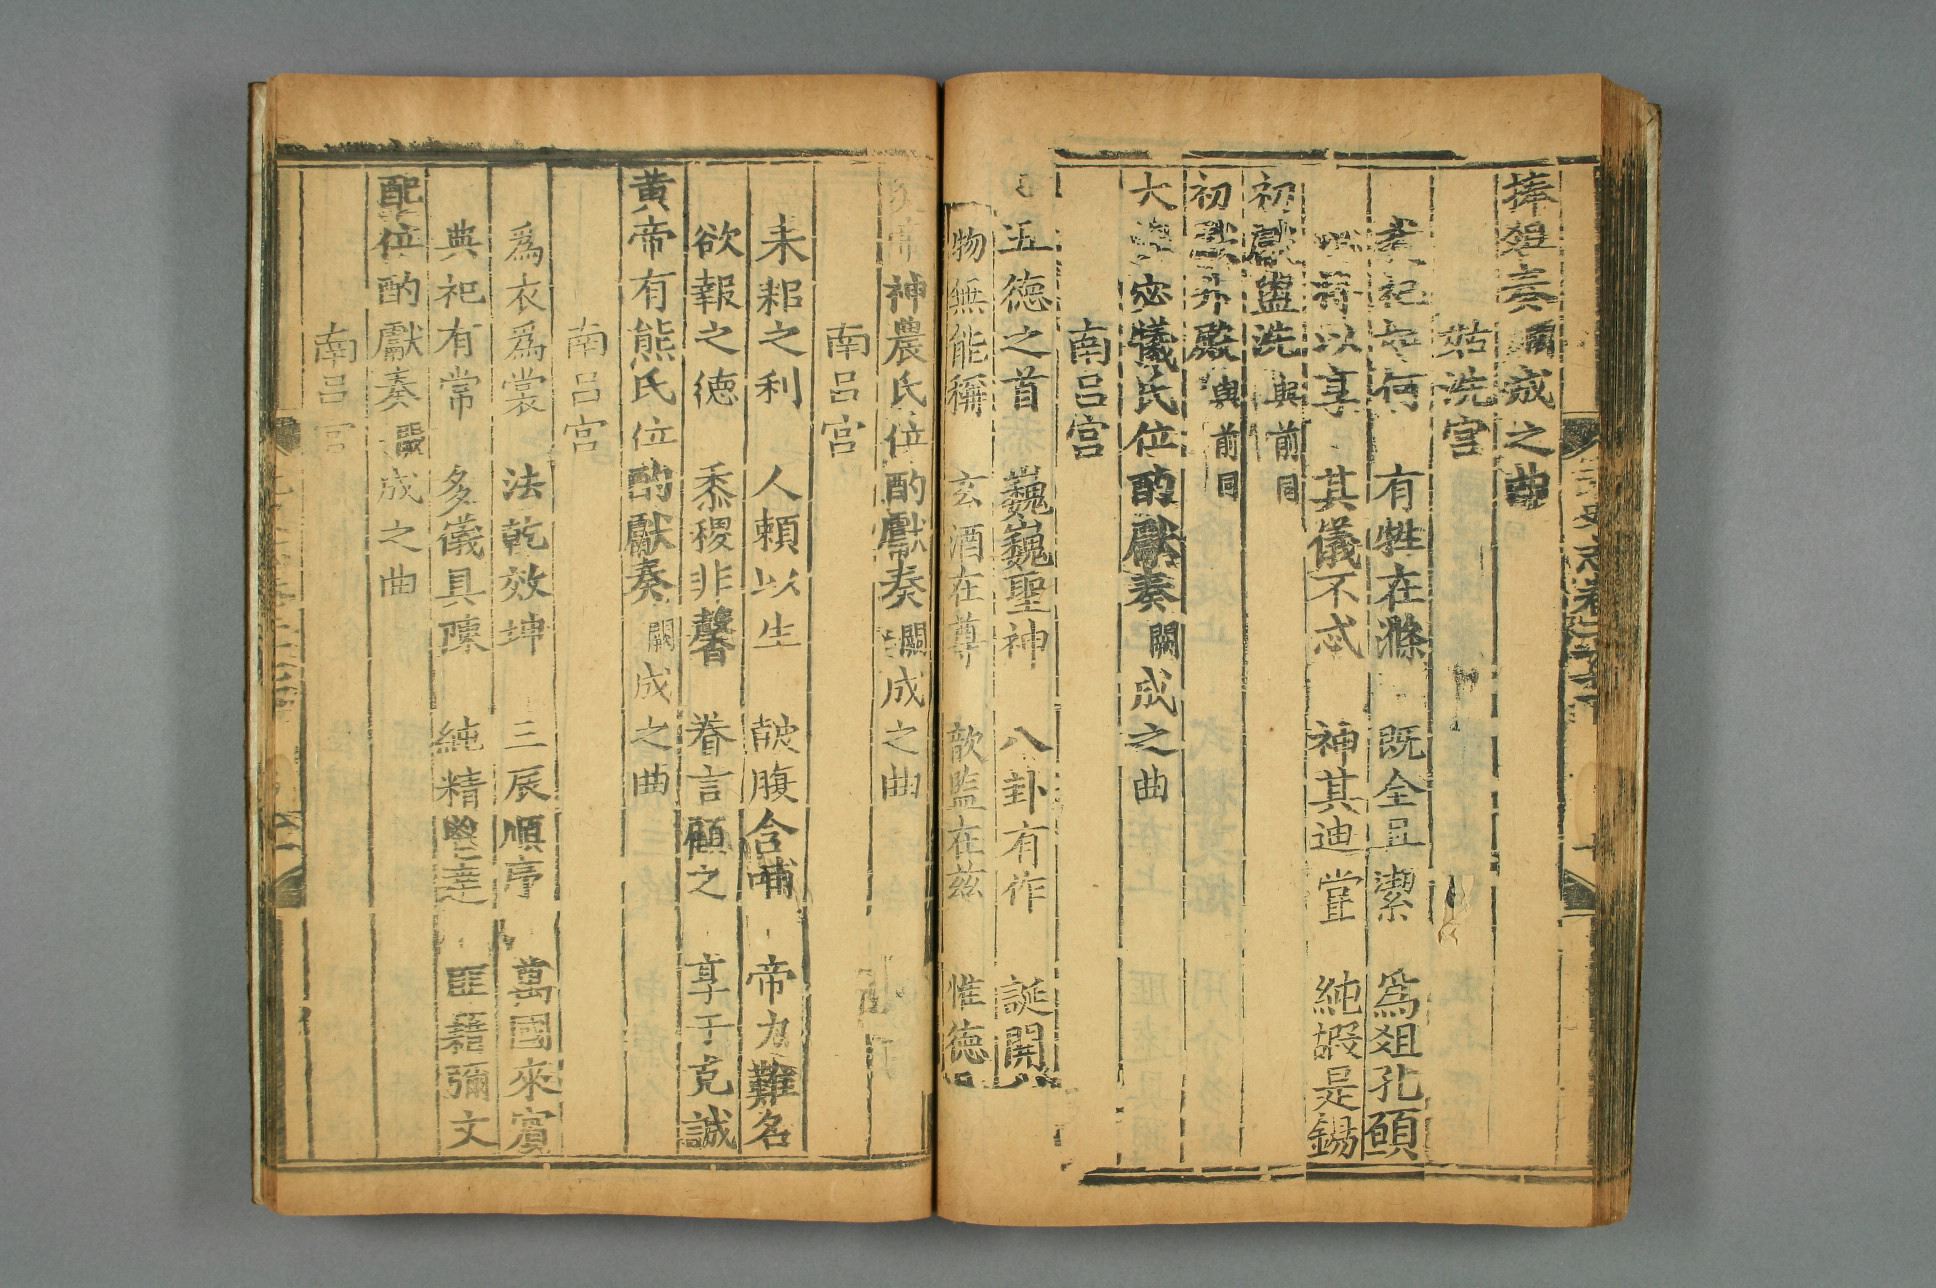 捧俎奏闕成之曲
姑洗宮
是祀云何　有牲在滌　既全且潔　為俎孔碩
以將以享　其儀不忒　神其迪嘗　純嘏是錫
初獻盥洗與前同
初獻升殿與前同
大皡宓犧氏位酌獻奏闕成之曲
南呂宮
五德之首　巍巍聖神　八卦有作　誕開
物無能稱　玄酒在尊　歆監在兹　惟德
神農氏位酌獻奏闕成之曲
南呂宮
耒耜之利　人賴以生　皷腹含哺　帝力難名
欲報之德　黍稷非馨　眷言顧之　享于克誠
黃帝有熊氏位酌獻奏闕成之曲
南呂宮
為衣為裳　法乾效坤　三辰順序　萬國來賓
典祀有常　多儀具陳　純精鬯達　匪藉彌文
配位酌獻奏闕成之曲
南呂宮